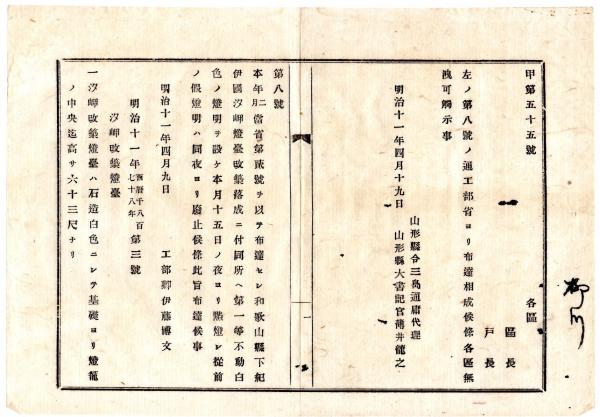 甲第五十五號
各區
區長
戸長
左ノ第八號ノ通工部省ヨリ布達相成候條各區無
洩可觸示事
山形縣令三島通庸代理
明治十一年四月十九日 山形縣大書記官薄井龍之
一
第八號
本年二月當省第貳號ヲ以テ布達セシ和歌山縣下紀
伊國汐岬燈臺改築落成ニ付同所ヘ第一等不動白
色ノ燈明ヲ設ケ本月十五日ノ夜ヨリ點燈シ從前
ノ假燈明ハ同夜ヨリ廢止候條此旨布達候事
明治十一年四月九日 工部卿伊藤博文
明治十一年西暦千八百七十八年第三號
汐岬改築燈臺
一汐岬改築燈臺ハ石造白色ニシテ基礎ヨリ燈籠
ノ中央迄高サ六十三尺ナリ